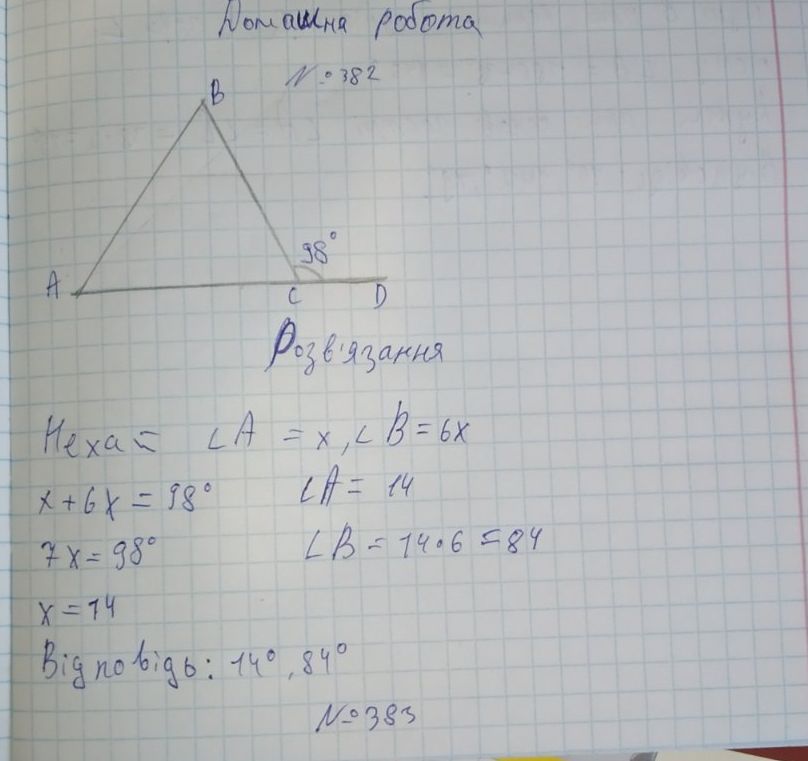 Домашна робота
№382
B
98°
A
C
D
Розв'язання
Нехай ∠A = x, ∠B = 6x
x + 6x = 98°
∠A = 14
7x = 98°
∠B = 14·6 = 84
x = 14
Відповідь: 14°, 84°
№383